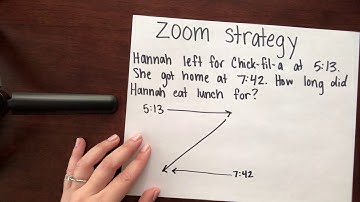 Zoom Strategy
Hannah left for Chick-fil-a at 5:13.
She got home at 7:42. How long did
Hannah eat lunch for?
5:13
7:42